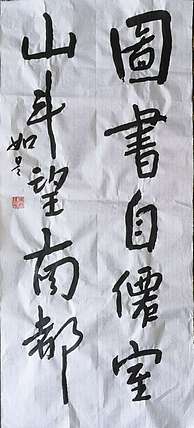 圖書自僊室
山斗望南都
如是